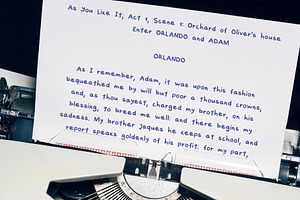 As You Like It, Act 1, Scene 1: Orchard of Oliver's house
Enter ORLANDO and ADAM
ORLANDO
As I remember, Adam, it was upon this fashion
bequeathed me by will but poor a thousand crowns,
and, as thou sayest, charged my brother, on his
blessing, to breed me well: and there begins my
sadness. My brother Jaques he keeps at school, and
report speaks goldenly of his profit: for my part,